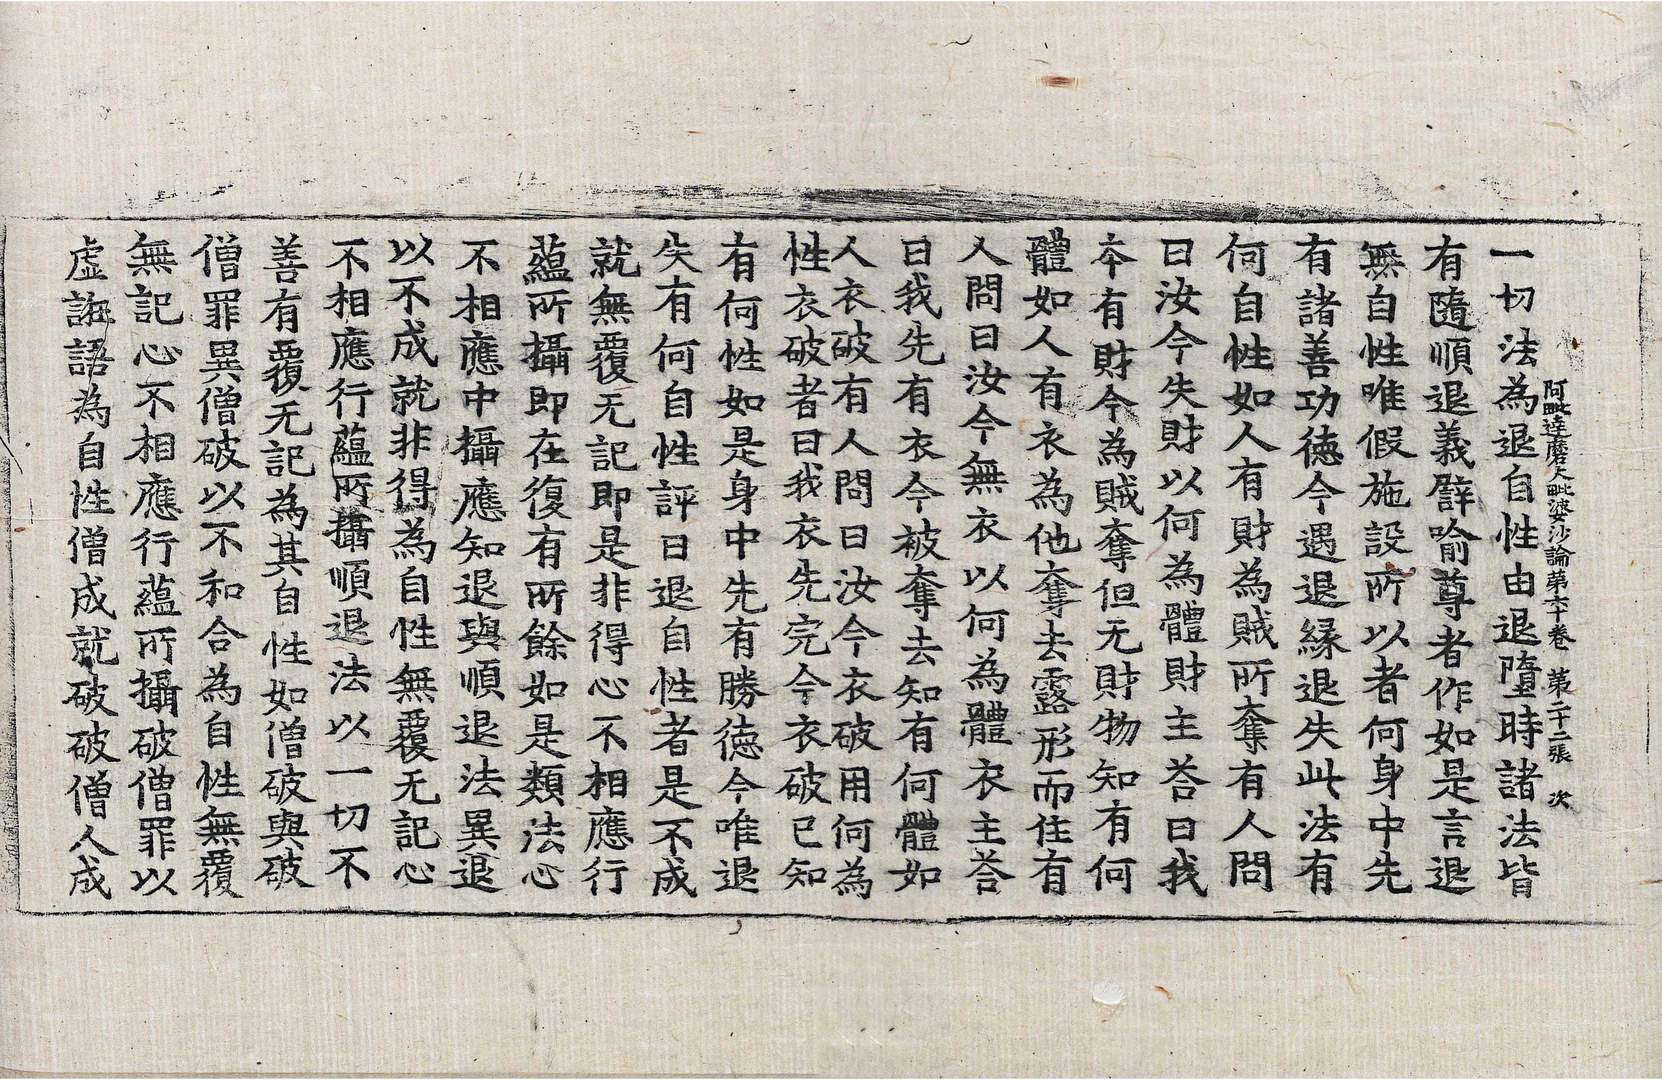 阿毗達磨大毗婆沙論第六十卷　第二十二張　次
一切法為退自性由退墮時諸法皆
有隨順退義譬喻尊者作如是言退
無自性唯假施設所以者何身中先
有諸善功德今遇退緣退失此法有
何自性如人有財為賊所奪有人問
曰汝今失財以何為體財主荅曰我
本有財今為賊奪但无財物知有何
體如人有衣為他奪去露形而住有
人問曰汝今無衣以何為體衣主荅
曰我先有衣今被奪去知有何體如
人衣破有人問曰汝今衣破用何為
性衣破者曰我衣先完今衣破已知
有何性如是身中先有勝德今唯退
失有何自性評曰退自性者是不成
就無覆无記即是非得心不相應行
蘊所攝即在復有所餘如是類法心
不相應中攝應知退與順退法異退
以不成就非得為自性無覆无記心
不相應行蘊所攝順退法以一切不
善有覆无記為其自性如僧破與破
僧罪異僧破以不和合為自性無覆
無記心不相應行蘊所攝破僧罪以
虛誑語為自性僧成就破破僧人成